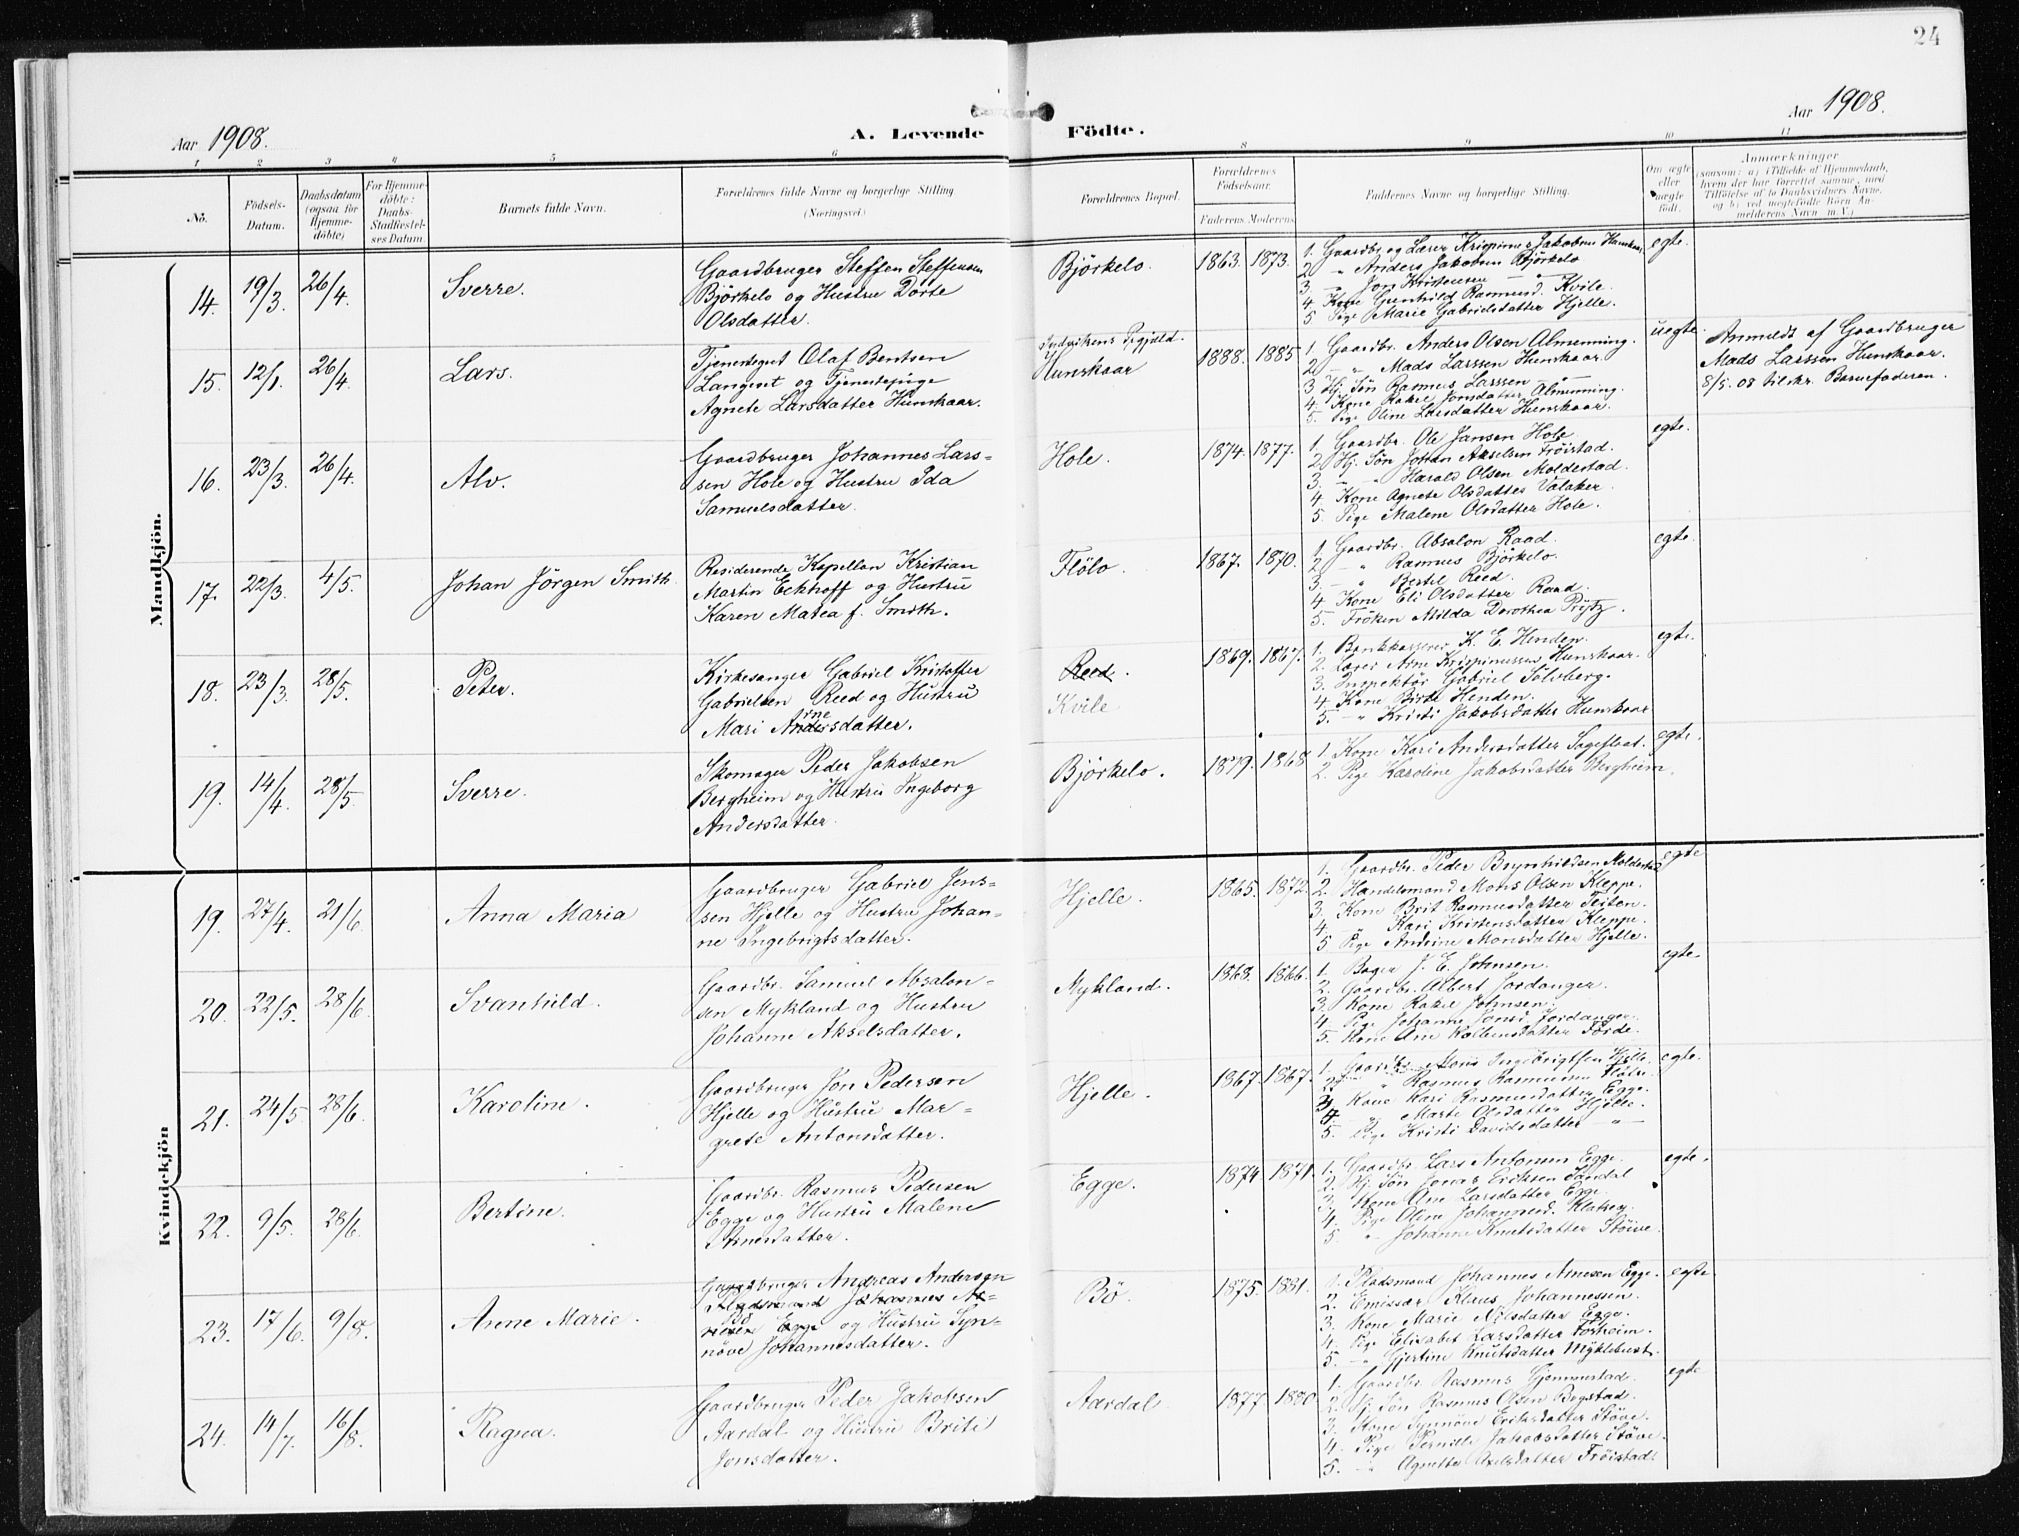 24
Aar 1908.
A. Levende
Födte.
Aar 1908.
1 2 3 4 5 6 8 9 10 11
No.
Födsels-
Datum.
Daabsdatum
(ogsaa for
Hjemme-
döbte)
For Hjemme-
döbte:
Daabs-
Stadfæstel-
ses Datum
Barnets fulde Navn.
Forældrenes fulde Navne og borgerlige Stilling
(Næringsvei)
Forældrenes Bopæl.
Forældrenes
Födselsaar.
Faderens Moderens
Faddernes Navne og borgerlige Stilling.
Om ægte
eller
uægte
födt.
Anmærkninger
(saasom: a) i Tilfælde af Hjemmedaab,
hvem der har forrettet samme, med
Tilföielse af to Daabsvidners Navne,
og b) ved uegtefödte Börn An-
melderens Navn m. V.)
Mandkjön.
14. 19/3 26/4. Sverre.
Gaardbruger Steffen Steffensen
Björkelo og Hustru Dorte
Olsdatter.
Björkelo. 1863. 1873.
1. Gaardbr. og Lærer Krispinus Jakobsen Hunskaar
2 " Anders Jakobsen Björkelo
3. " Jon Kristensen "
4. Kone Gunhild Rasmusd. Kvile.
5 Pige Marie Gabrielsdatter Hjelle.
egte.
15. 12/1. 26/4. Lars.
Tjenestegut Olaf Bentsen
Langeset og Tjenestepige
Agnete Larsdatter Hunskaar.
Hunskaar 1888. 1885
1. Gaardbr. Anders Olsen Almenning.
2 " Mads Larssen Hunskaar.
3 Hj. Søn Rasmus Larssen "
4. Kone Rakel Jonsdatter Almenning.
5. Pige Oline Larsdatter Hunskaar.
uegte.
Anmeldt af Gaardbruger
Mads Larssen Hunskaar.
8/5. 08 tilskr. Barnefaderen.
16. 23/3. 26/4. Alv.
Gaardbruger Johannes Lars-
sen Hole og Hustru Ida
Samuelsdatter.
Hole. 1874. 1877.
1. Gaardbr. Ole Jansen Hole
2 Hj. Søn Johan Akselsen Fröistad.
3. " Harald Olsen Moldestad.
4. Kone Agnete Olsdatter Valaker.
5. Pige Malene Olsdatter Hole.
egte.
17. 22/3. 4/5. Johan Jörgen Smith.
Residerende Kapellan Kristian
Martin Eckhoff og Hustru
Karen Matea f. Smith.
Flölo. 1867. 1870.
1. Gaardbr. Absalon Raad.
2 " Rasmus Björkelo.
3 " Bertil Reed.
4. Kone Eli Olsdatter Raad.
5. Fröken Milda Dorothea Prytz.
egte.
18. 23/3. 28/5. Peter.
Kirkesanger Gabriel Kristoffer
Gabrielsen Reed og Hustru
Mari Arnesdatter.
Reed.
Kvile
1869. 1867.
1. Bankkasserer K. E. Henden.
2. Lærer Arne Krispinussen Hunskaar.
3. Inspektör Gabriel Sölvberg.
4 Kone Birte Henden.
5. " Kristi Jakobsdatter Hunskaar
egte.
19. 14/4. 28/5. Sverre.
Skomager Peder Jakobsen
Bergheim og Hustru Ingeborg
Andersdatter.
Björkelo. 1879. 1868
1. Kone Kari Andersdatter
2. Pige Karoline Jakobsdatter Bergheim.
egte.
Kvindekjön
19. 27/4. 21/6. Anna Maria
Gaardbruger Gabriel Jens-
sen Hjelle og Hustru Johan-
ne Ingebrigtsdatter.
Hjelle. 1865. 1872.
1. Gaardbr. Peder Brynhildsen Moldestad
2. Handelsmand Mons Olsen Kleppe.
3. Kone Brit Rasmusdatter
4. " Kari Kristensdatter Kleppe.
5 Pige Andrine Monsdatter Hjelle.
egte
20. 22/5. 28/6. Svanhild.
Gaardbr. Samuel Absalon-
sen Mykland og Hustru
Johanne Akselsdatter.
Mykland. 1868. 1866.
1. Bager J. E. Johnsen.
2. Gaardbr. Albert Jordanger.
3. Kone Rakel Johnsen.
4. Pige Johanne Jonsd. Jordanger.
5. Kone Ane Förde.
egte.
21. 24/5 28/6. Karoline.
Gaardbruger Jon Pedersen
Hjelle og Hustru Mar-
grete Antonsdatter.
Hjelle. 1867. 1867.
1. Ingebrigtsen Hjelle.
2 " Rasmus Rasmussen
3 Kone Kari Rasmusdatter Egge.
4. " Marte Olsdatter Hjelle.
5. Pige Kristi Davidsdatter "
egte.
22. 9/5. 28/6. Bertine.
Gaardbr. Rasmus Pedersen
Egge og Hustru Malene
Arnesdatter.
Egge. 1874 1871.
1. Gaardbr. Lars Antonsen Egge.
2. Hj. Søn Jonas Eriksen Sandal
3. Kone Ane Larsdatter Egge.
4. Pige Oline Johannesd.
5. " Johanne Knutsdatter Stöive.
egte.
23. 17/6. 9/8. Anne Marie.
Gaardbruger Andreas Andersen
Pladsmand Johannes Ar-
nesen Egge Bö og Hustru Syn-
növe Johannesdatter.
Bö. 1875. 1881.
1. Pladsmand Johannes Arnesen Egge.
2. Emissær Klaus Johannessen.
3. Kone Marie Nilsdatter Egge.
4. Pige Elisabet Larsdatter
5. " Gjertine Knutsdatter Myklebust.
egte.
24. 14/7. 16/8. Ragna.
Gaardbruger Peder Jakobsen
Aardal og Hustru Brite
Jonsdatter.
Aardal 1877. 1880.
1. Gaardbr. Rasmus Gjemmestad.
2. Hj. Søn Rasmus Olsen Bogstad.
3. Kone Synnöve Eriksdatter Stöve.
4. Pige Pernille Jakobsdatter Stöve.
5. " Agnette Axelsdatter Fröistad.
egte